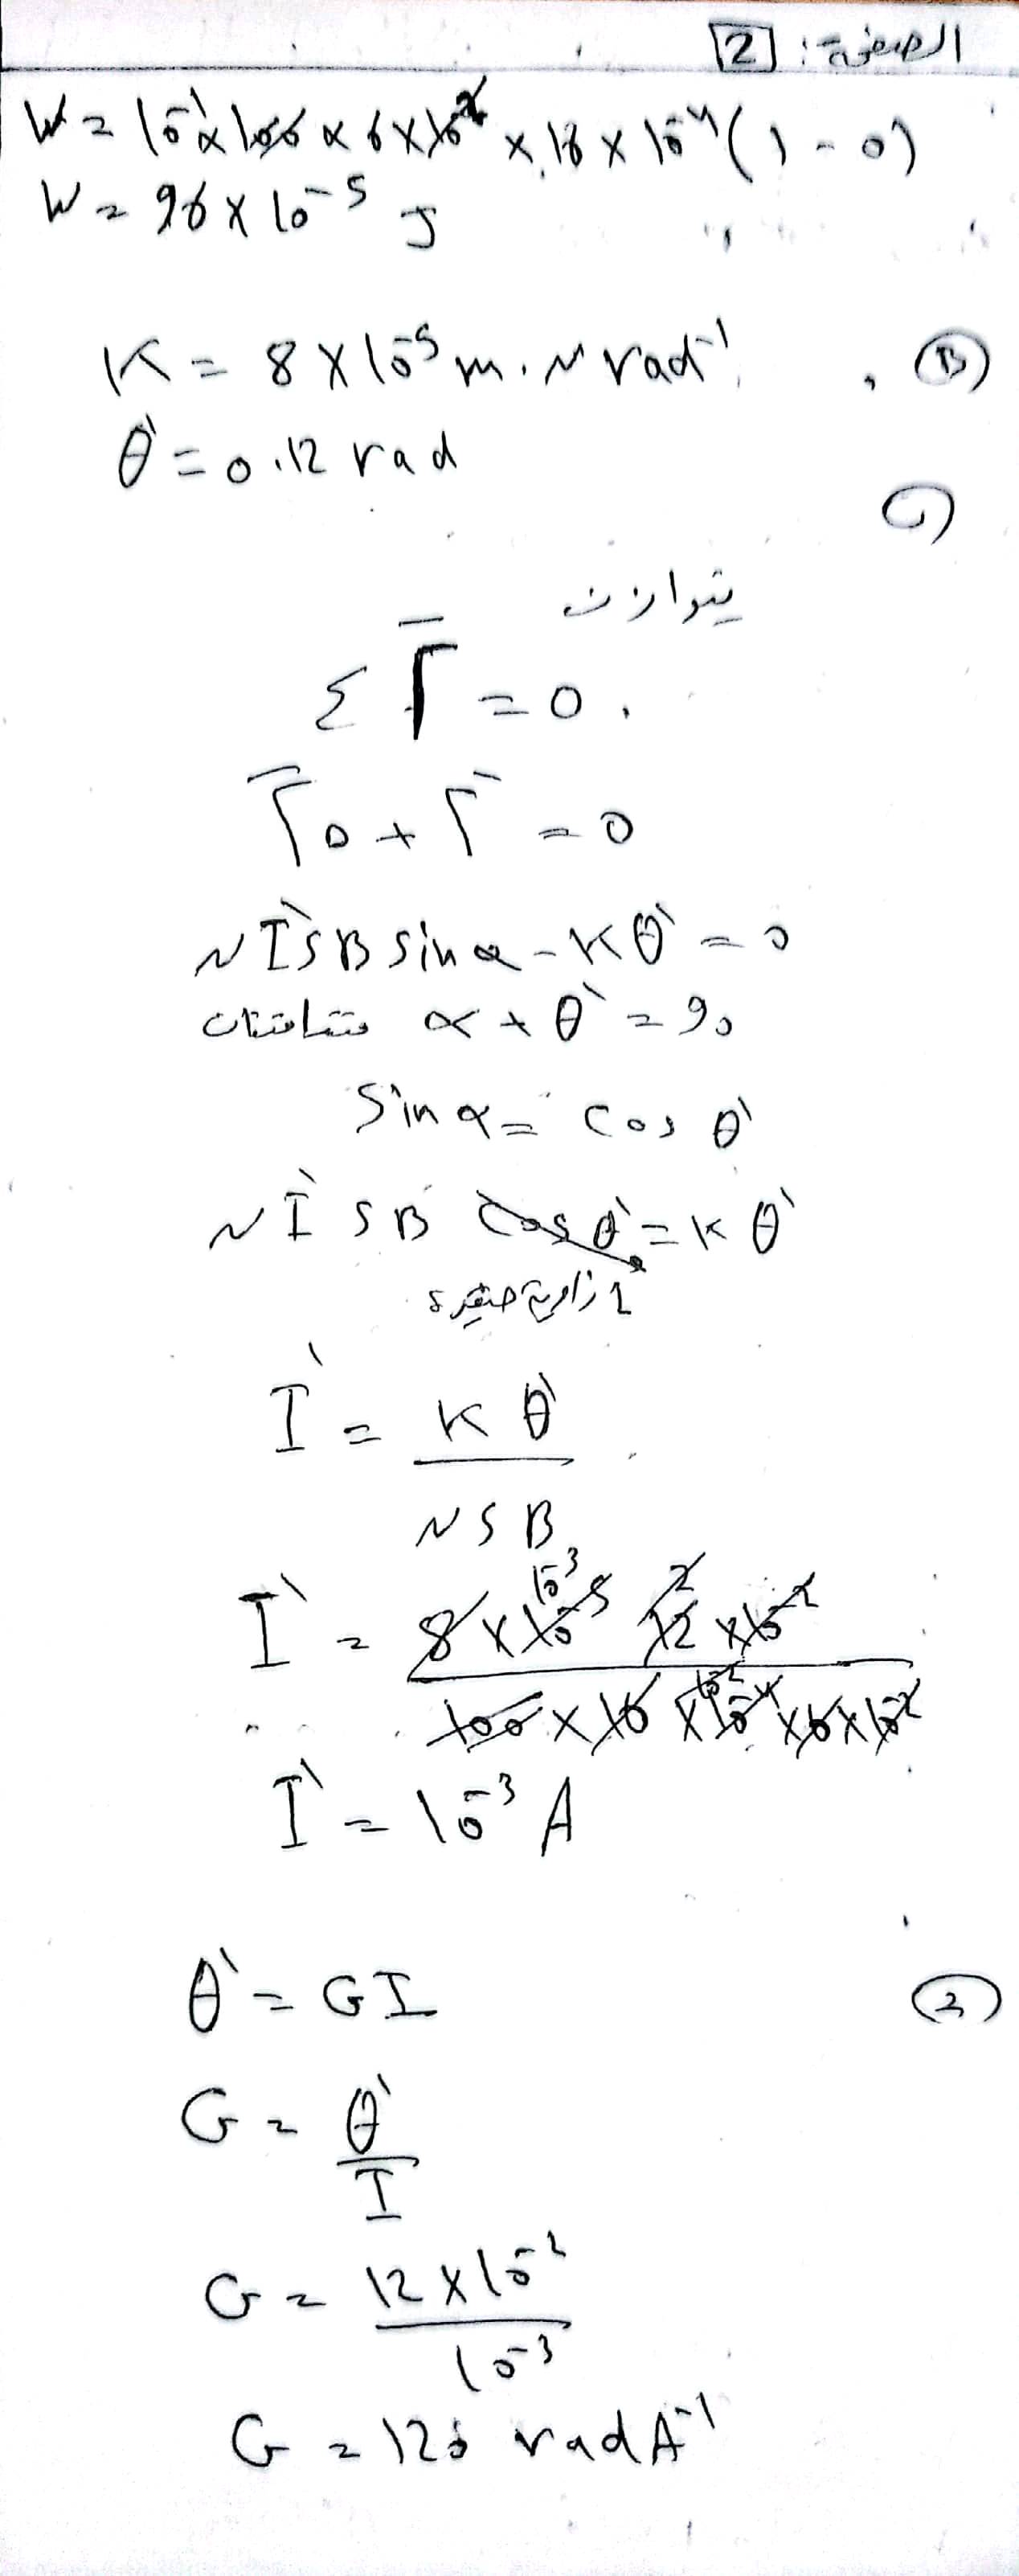 الصفحة: 2
W = 10⁻¹ × 100 × 6 × 10⁻² × 16 × 10⁻⁴ (1 - 0)
W = 96 × 10⁻⁵ J
K = 8 × 10⁻⁵ m.N rad⁻¹ (B)
θ' = 0.12 rad
(1
يتوازن
Σ Γ̄ = 0
Γ̄₀ + Γ̄ = 0
N I' S B sin α - K θ' = 0
α + θ' = 90 متتامتان
sin α = cos θ'
N I' S B cos θ' = K θ'
1 زاوية صغيرة
I' = K θ'
N S B
10⁻³ 2
I' = 8 × 10⁻⁵ 12 × 10⁻²
100 × 16 × 10⁻⁴ × 6 × 10⁻²
10⁻²
I' = 10⁻³ A
θ' = G I (2)
G = θ'
I
G = 12 × 10⁻²
10⁻³
G = 120 rad A⁻¹